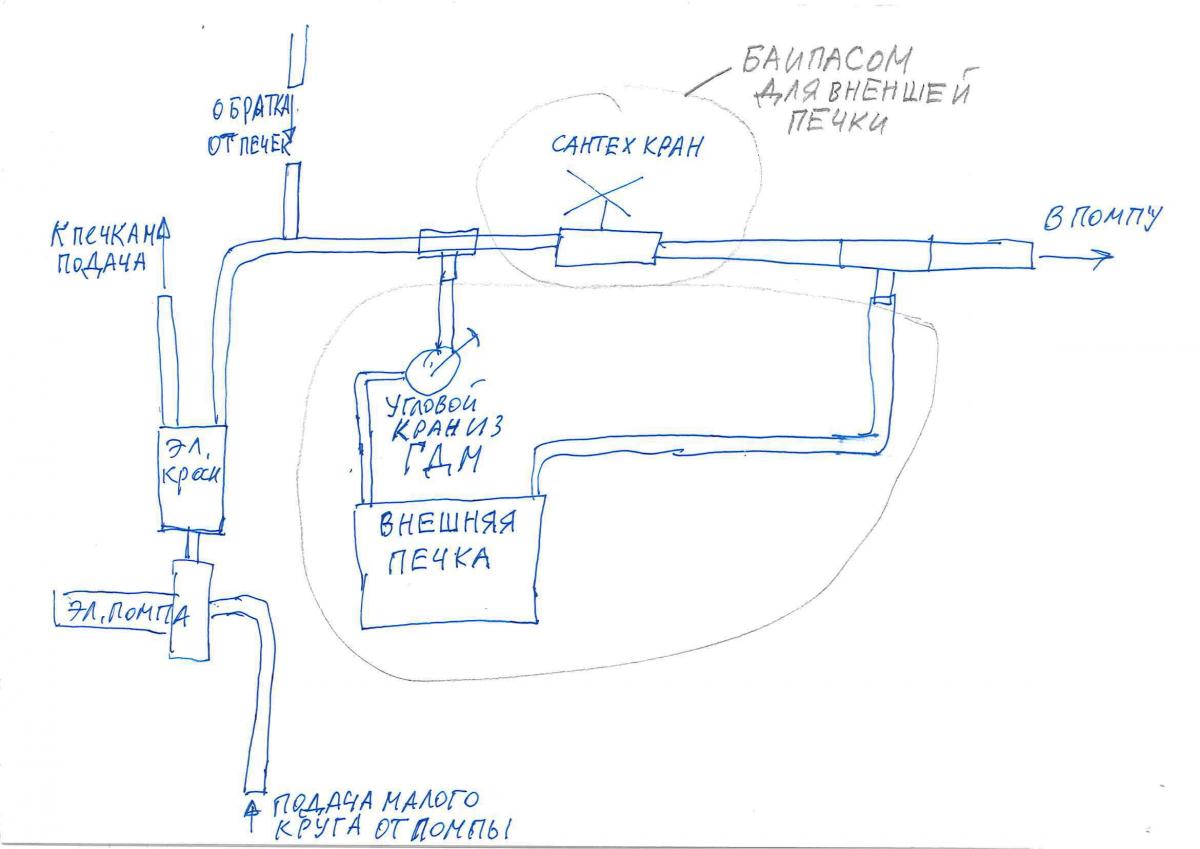 БАЙПАСОМ
ДЛЯ ВНЕНШЕЙ
ПЕЧКИ
ОБРАТКА
ОТ ПЕЧЕК
САНТЕХ КРАН
К ПЕЧКАМ
ПОДАЧА
В ПОМПУ
УГЛОВОЙ
КРАН ИЗ
ГДМ
ЭЛ.
кран
ВНЕШНЯЯ
ПЕЧКА
ЭЛ. ПОМПА
ПОДАЧА МАЛОГО
КРУГА ОТ ПОМПЫ